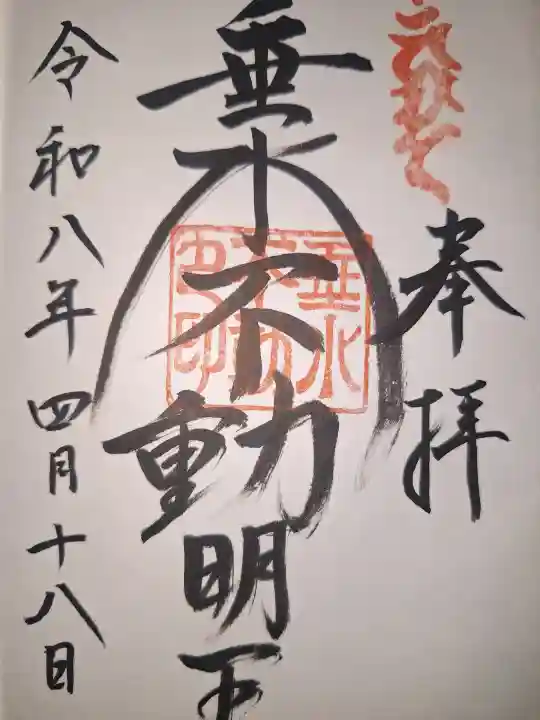 奉拝
垂水不動明王
令和八年四月十八日